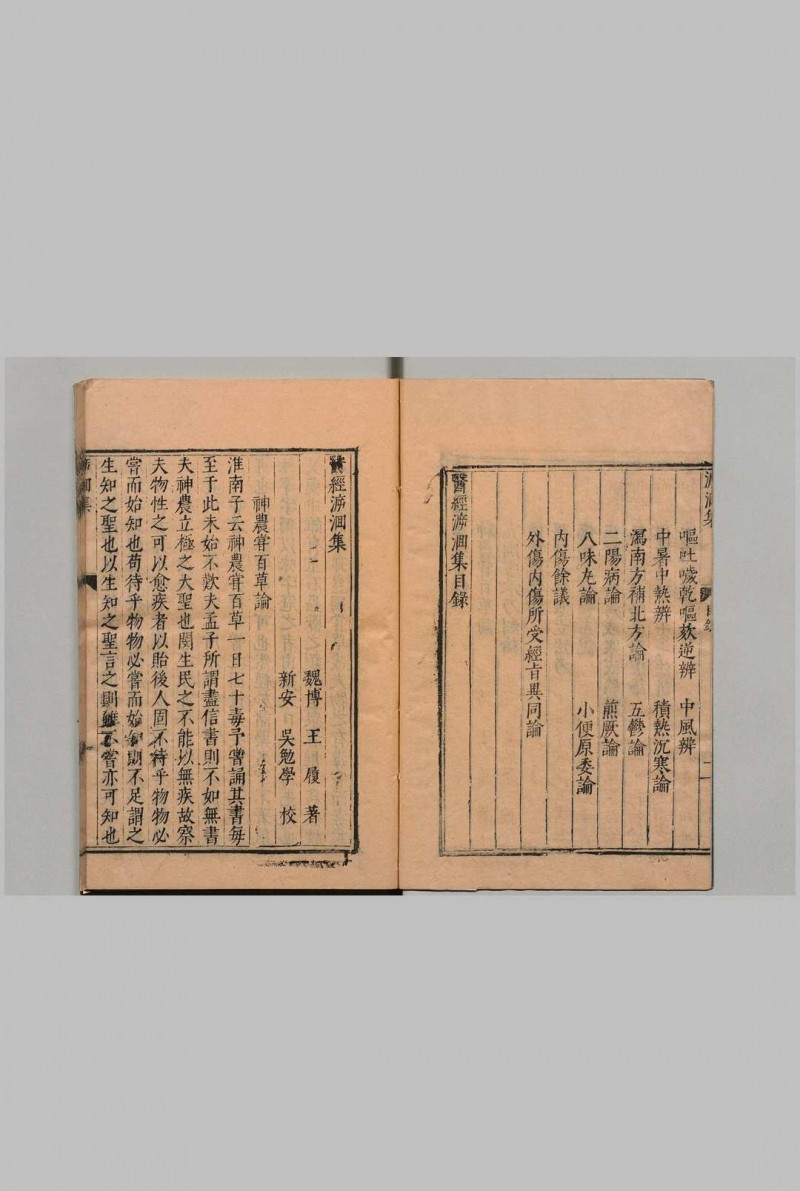 嘔吐噦乾嘔欬逆辨　中風辨
中暑中熱辨　積熱沉寒論
瀉南方補北方論　五鬱論
二陽病論　煎厥論
八味丸論　小便原委論
內傷餘議
外傷內傷所受經旨異同論
醫經泝洄集目錄
醫經泝洄集
魏博　王　履　著
新安　吳勉學　校
神農嘗百草論
淮南子云神農甞百草一日七十毒予嘗誦其書每
至于此未始不歎夫孟子所謂盡信書則不如無書
夫神農立極之大聖也閔生民之不能以無疾故察
夫物性之可以愈疾者以貽後人固不待乎物物必
嘗而始知也苟待乎物物必嘗而始知則不足謂之
生知之聖也以生知之聖言之則雖不嘗亦可知也